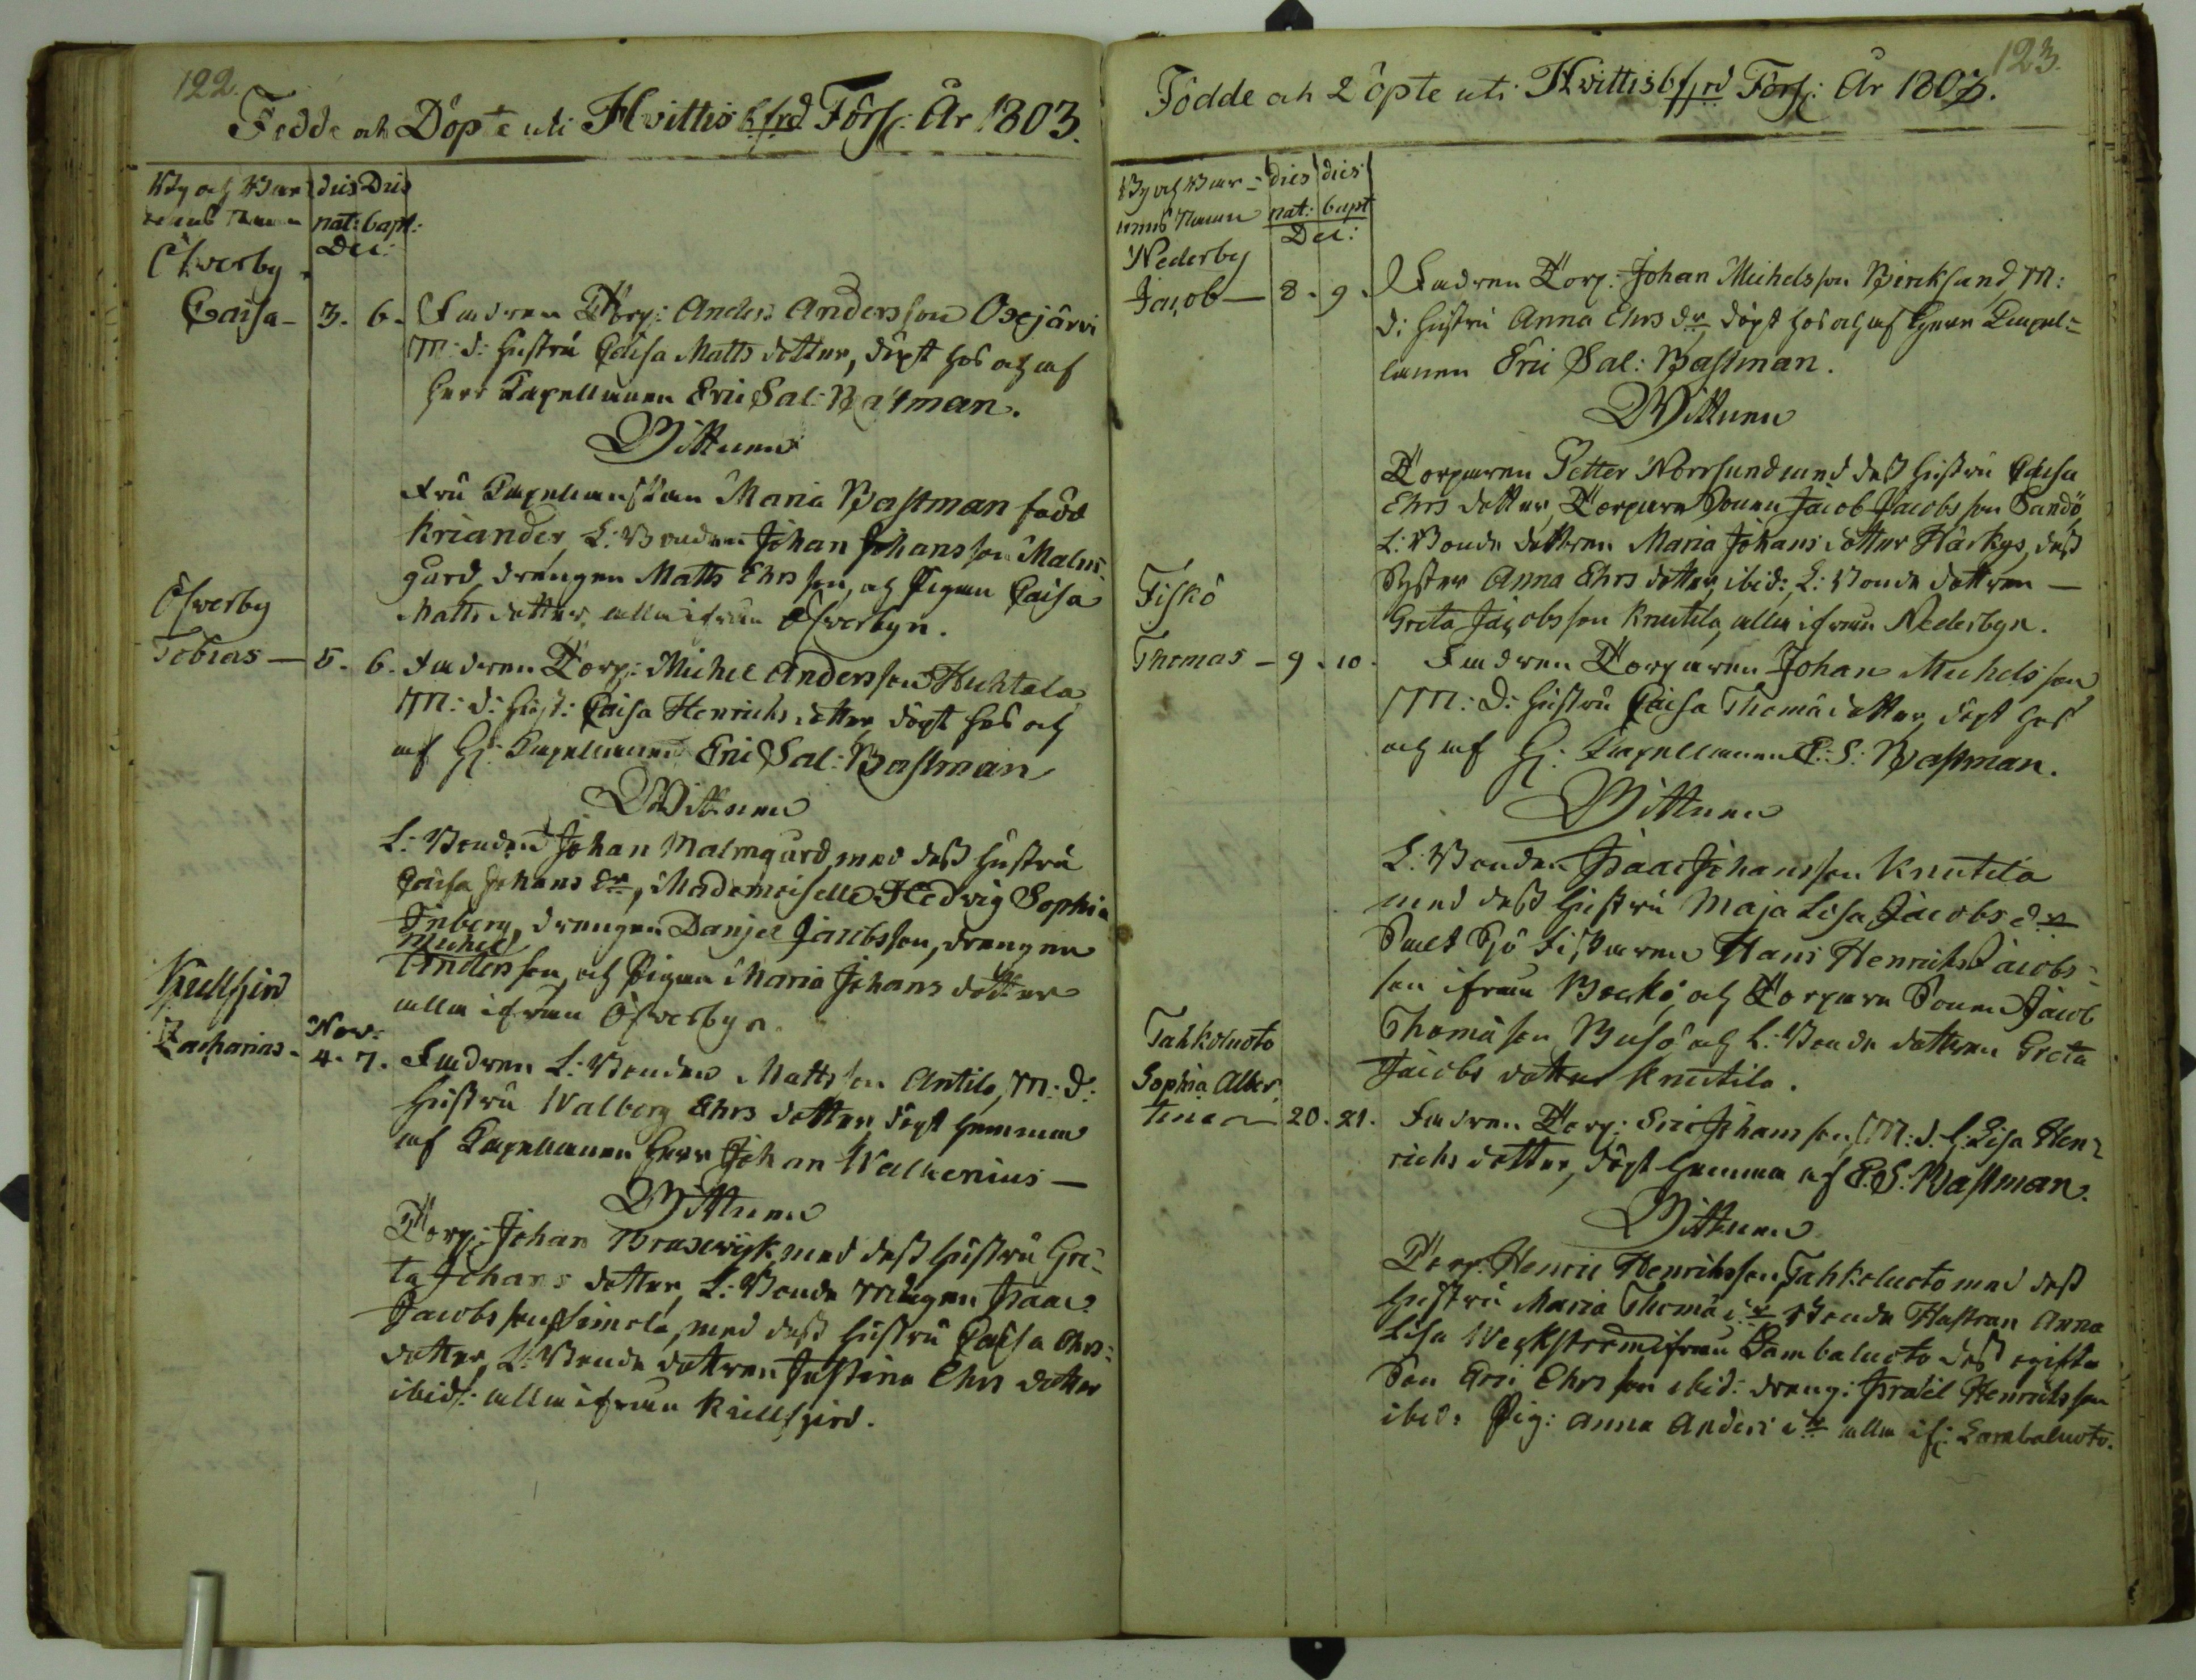 122.
Födde ah Döpte uti Hvittisb:frd Förs: År 1803.
By och Bar dies Dies
nens Namn nat: bapt:
Dec:
Öfwerby
Caisa - 3. 6. Fadren Torp: Anders Andersson Oxejärvi
M: d: hustru Caisa Matts dotter, döpt hos och af
Herr Capellanen Eric Sal: Bastman.
Wittnen
Fru Capellanskan Maria Bastman född
Kriander, L: Bonden Johan Johansson Malm-
gård, drengen Matts Ehrsson, och Pigan Caisa
Matts dotter, alla ifrån Öfwerbyn.
Öfwerby
Tobias — 5. 6. Fadren Torp: Michel Andersson Huhtala
M: d: hust: Caisa Henrichs dotter, döpt hos och
af H: Capellanen Eric Sal: Bastman
Wittnen
L: Bonden Johan Malmgård, med dess hustru
Caisa Johans dr, Mademoiselle Hedvig Sophia
Inberg, drengen Danjel Jacobsson, drengen
Michel
Andersson, och Pigan Maria Johans dotter
alla ifrån Öfwerbyn.
Kullfjerd
Nov:
Zacharias - 4. 7. Fadren L: Bonden Mattsson Antila, M: d:
hustru Walborg Ehrs dotter, döpt hemma
af Capellanen Herr Johan Walhenius —
Wittnen
Torp: Johan Braxewijk, med dess hustru Gre-
ta Johans dotter, L: Bonde Mågen Isaac
Jacobsson Simola, med dess hustru Caisa Ehrs
dotter, L: Bonde dottren Justina Ehrs dotter
ibid: alla ifrån Kullfjerd.
123.
Födde ah Döpte uti Hvittisbfjrd Förs: År 1803.
By och Bar- dies dies
nens Namn nat: bapt
Dec:
Nederby
Jacob — 8. 9. Fadren Torp: Johan Michelsson Björksund, M:
d: hustru Anna Ehrs dr döpt hos och af Herr Capel-
lanen Eric Sal: Bastman.
Wittnen
Torparen Petter Norrsund med dess hustru Caisa
Ehrs dotter, Torpare Sonen Jacob Jacobsson Sandö,
L: Bonde dottren Maria Johans dotter Härkys, dess
Syster Anna Ehrs dotter, ibid: L: Bonde dottren —
Greta Jacobsson Knutila, alla ifrån Nederbyn.
Fiskö
Thomas - 9. 10. Fadren Torparen Johan Michelsson
M: D: hustru Caisa Thomä dotter, döpt hos
och af H: Capellanen E: S: Bastman.
Wittnen
L: Bonden Isaac Johansson Knutila
med dess hustru Maja Lisa Jacobs dr
Salt Sjö Fiskaren Hans Henrichs Jacobs-
son ifrån Bockö, och Torpare Sonen Jacob
Thomäson Busö och L: Bonde dottren Greta
Jacobs dotter Knutila.
Tahkoluoto
Sophia Alber
tina 20. 21. Fadren Torp: Eric Johansson, M: d. h: Lisa Hen-
richs dotter, döpt hemma af E. S: Bastman.
Wittnen
Torp: Henric Henrichsson Tahkoluoto med dess
hustru Maria Thomä dr Bonde Hustran Anna
Lisa Weckström ifrån Lambaluoto dess ogifta
Son Eric Ehrsson ibid: dreng: Israel Henrichsson
ibid: Pig: Anna Anders dr alla if: Lambaluoto.